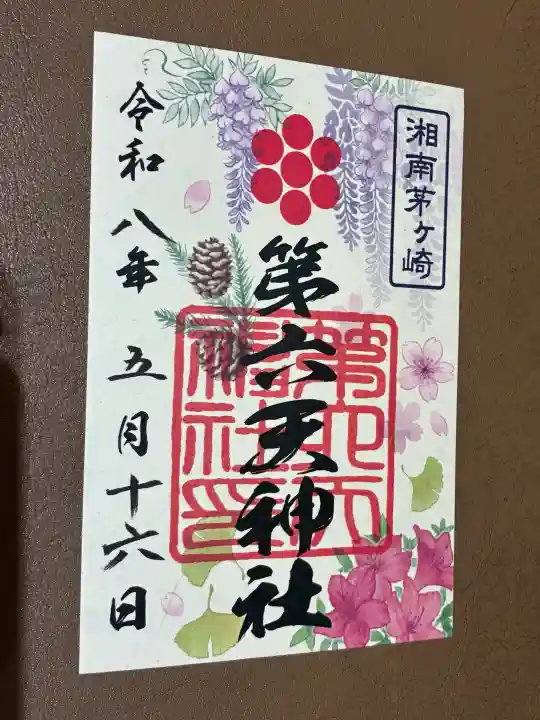 湘南茅ヶ崎
第六天神社
第六天
神社印
令和八年 五月十六日